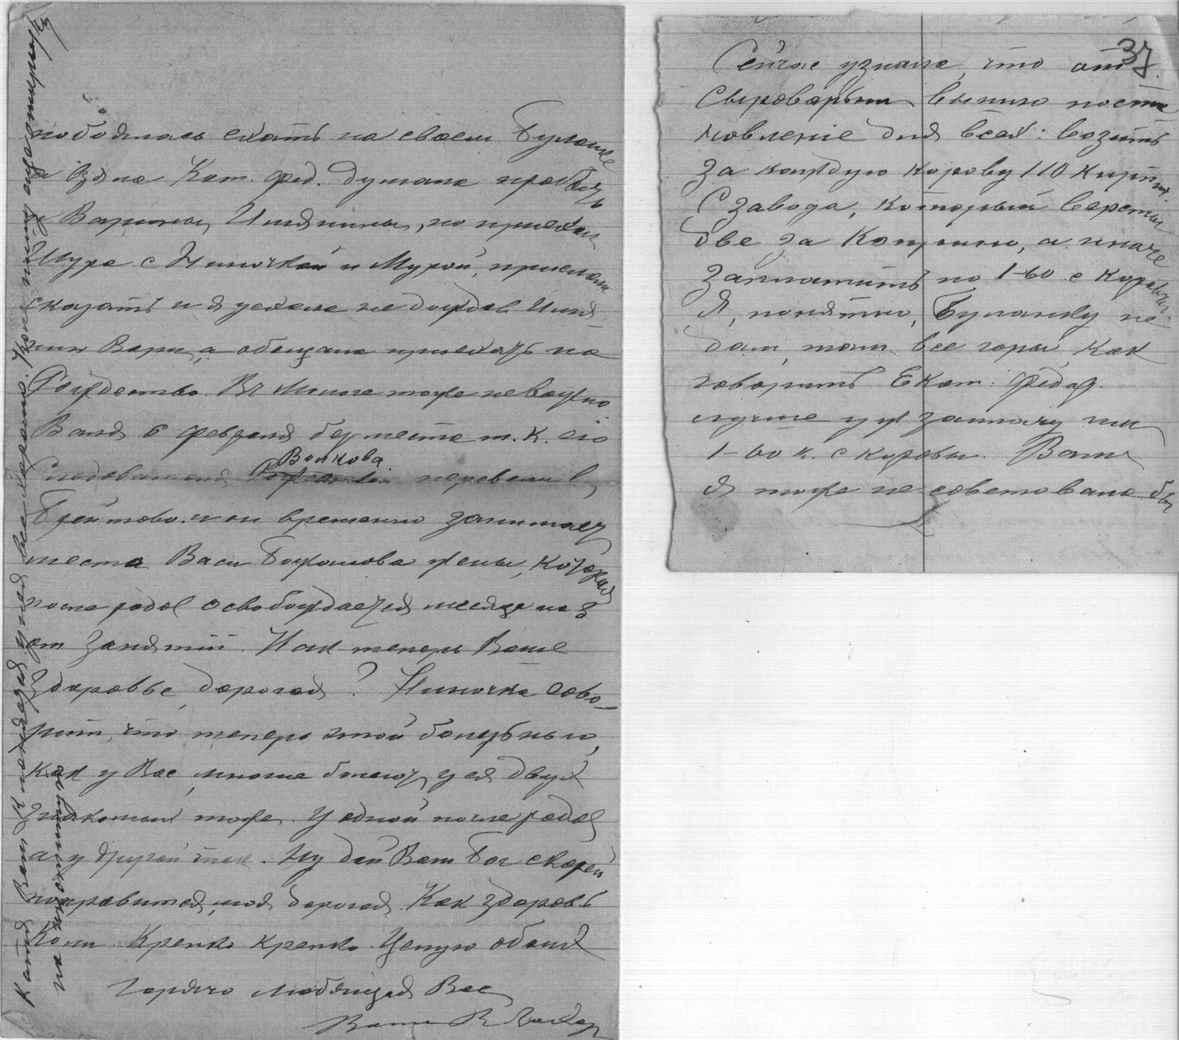 побоялась ехать на своем Буланке
а Зина Кат. Фед. думала
Варины, но приехали
Шура с Ниночкой и Мурой, прислали
сказать и я уехала не дождав
Вари, а обещала приехать на
Рождество. В тоже неважно
Ваня 6 февраля без места т. к. его
Волкова
перевели в
Брейтово. и он временно занимает
место Васи жены, которая
после родов освобождается месяца на 3
от занятий. Как теперь Ваше
здоровье, дорогая? Ниночка гово-
рит, что теперь этой болезнью,
как у Вас, многие у ея двух
знакомых тоже. У одной после родов
а у другой так. Ну дай Вам Бог скорей
поправиться, моя дорогая. Как здоровье
Коли. Крепко крепко целую обоих
горячо любящая Вас
Ваша В.
Катя Вам у нея все хорошо. Коле пишу еще открытку
37
Сейчас узнала, что от
Сыроварни вышло поста
новление для всех: возить
за каждую корову 110 кирпич.
С завода, который версты
две за, а иначе
заплатить по 1-60 с коровы.
Я, понятно, Буланку не
дам, там все горы как
говорить Екат. Федор.
лучше уж заплачу им
1-60 к. с коровы. Вам
я тоже не советовала бы